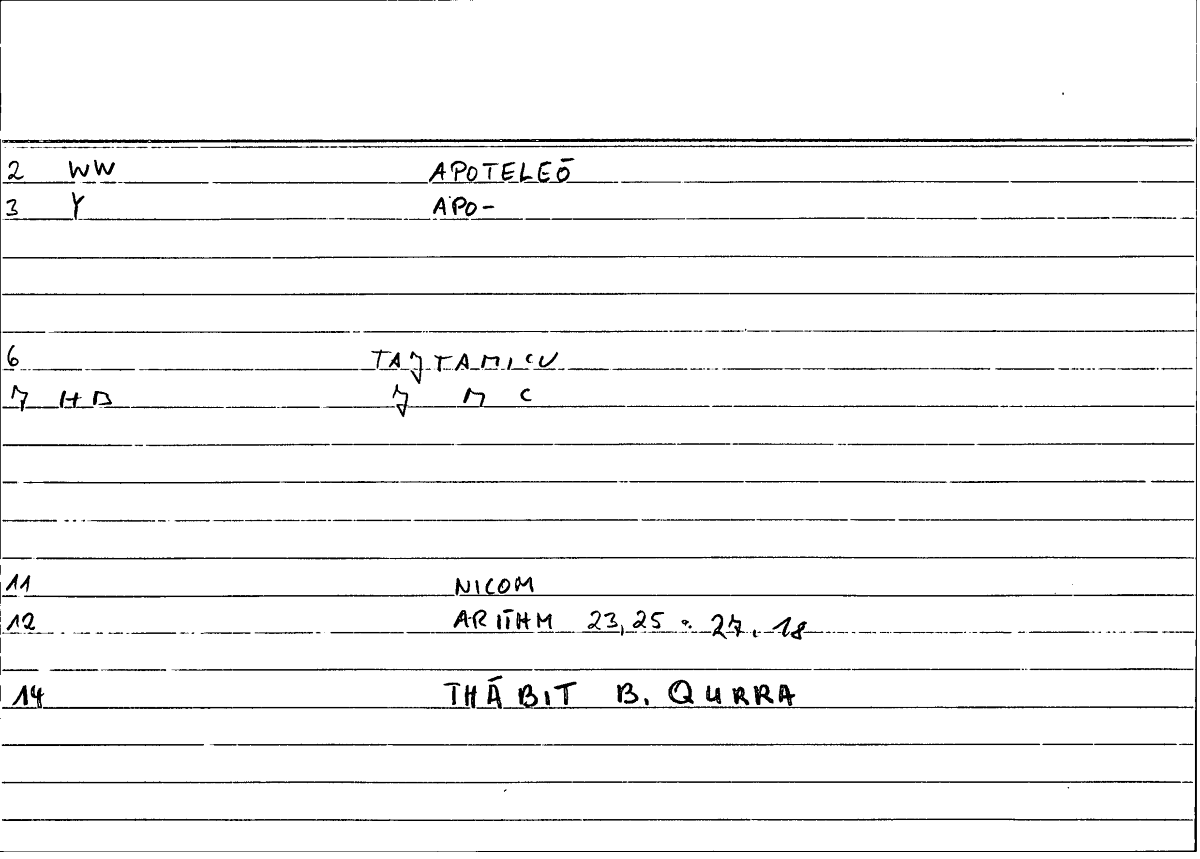 2 WW APOTELEŌ
3 Y APO-
6 TAJTAMICU
7 HB J M C
11 NICOM
12 ARITHM 23,25 : 27,18
14 THĀBIT B. QURRA